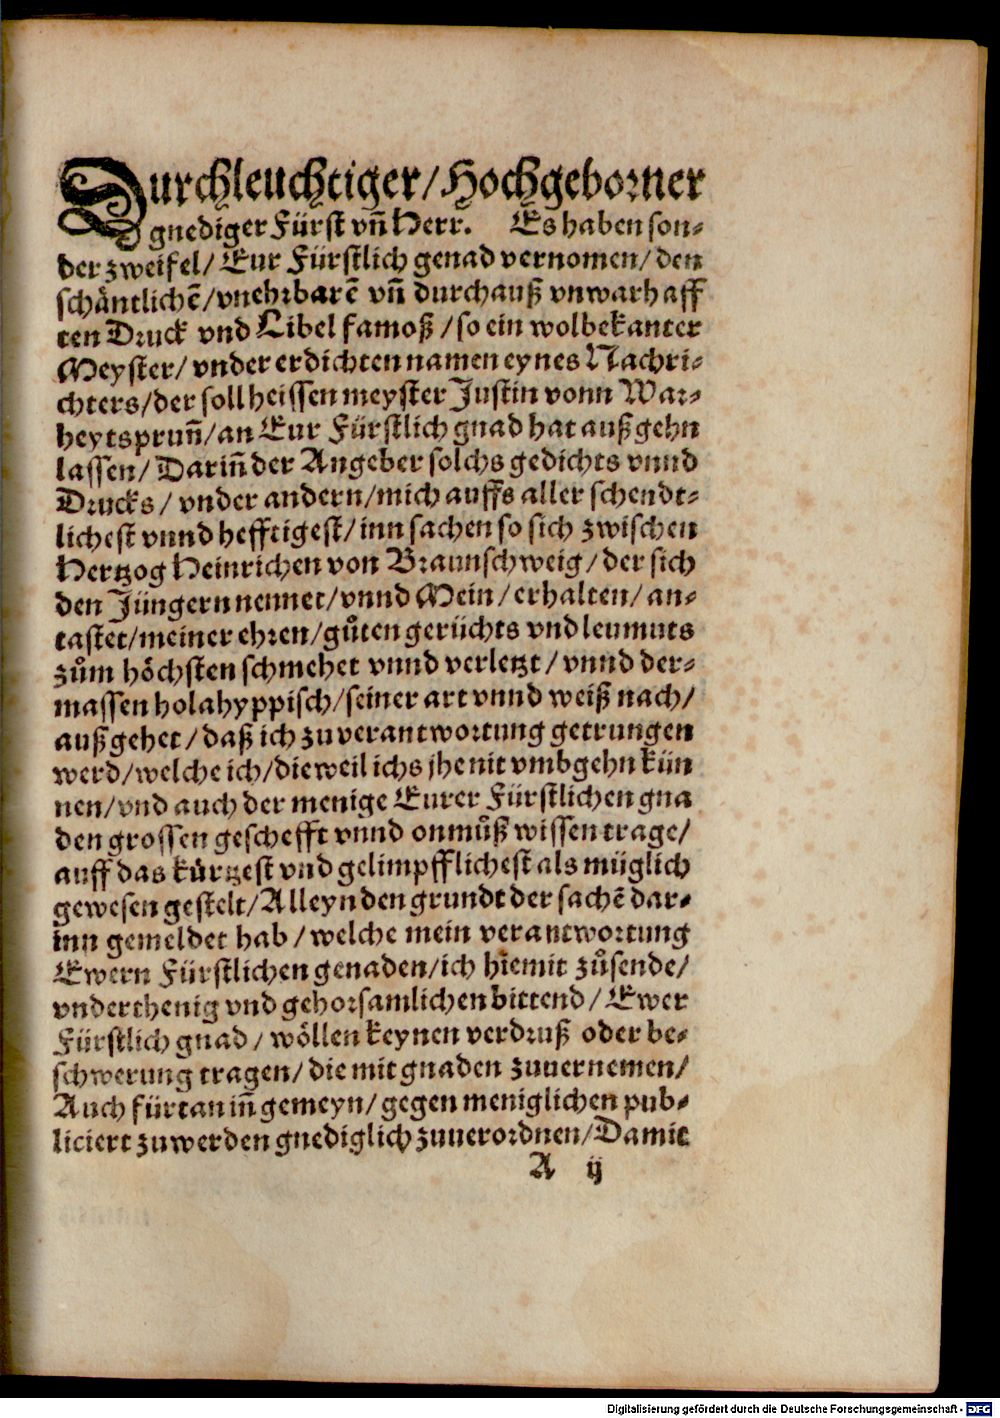 Durchleuchtiger/Hochgeborner
gnediger Fürst vñ Herr. Es haben son-
der zweifel/ Eur Fürstlich genad vernomen/ den
schåntlichẽ/vnehrbarẽ vñ durchauß vnwarhaff
ten Druck vnd Libel famoß/so ein wolbekanter
Meyster/ vnder erdichten namen eynes Nachri-
chters/der soll heissen meyster Justin vonn War-
heytsprun̄/an Eur Fürstlich gnad hat außgehn
lassen/ Darin̄ der Angeber solchs gedichts vnnd
Drucks/ vnder andern/mich auffs aller schendt-
lichest vnnd hefftigest/inn sachen so sich zwischen
Hertzog Heinrichen von Braunschweig/der sich
den Jüngern nennet/vnnd Mein/erhalten/an-
tastet/meiner ehren/gůten gerüchts vnd leumuts
zům hôchsten schmehet vnnd verletzt/vnnd der-
massen holahyppisch/seiner art vnnd weiß nach/
außgehet/daß ich zu verantwortung getrungen
werd/welche ich/dieweil ichs jhe nit vmbgehn kün
nen/vnd auch der menige Eurer Fürstlichen gna
den grossen geschefft vnnd onmůß wissen trage/
auff das kürtzest vnd gelimpfflichest als müglich
gewesen gestelt/Alleyn den grundt der sachẽ dar-
inn gemeldet hab/welche mein verantwortung
Ewern Fürstlichen genaden/ich hiemit zůsende/
vnderthenig vnd gehorsamlichen bittend/ Ewer
Fürstlich gnad/ wôllen keynen verdruß oder be-
schwerung tragen/die mit gnaden zuuernemen/
Auch fürtan in̄ gemeyn/gegen meniglichen pub-
liciert zuwerden gnediglich zuuerordnen/Damit
A ij
Digitalisierung gefördert durch die Deutsche Forschungsgemeinschaft - DFG